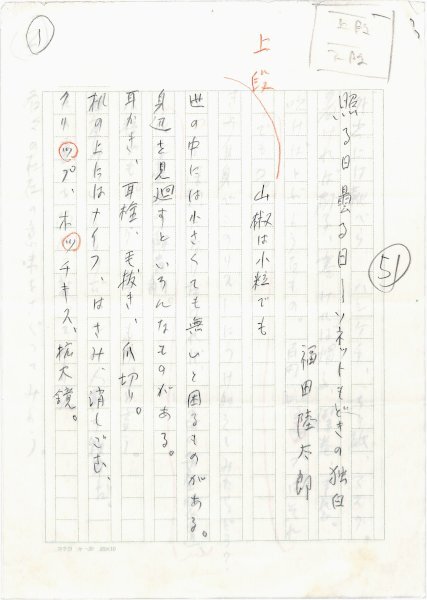 照る日曇る日―ソネットもどきの独白
福田陸太郎
山椒は小粒でも
世の中には小さくても無いと困るものがある。
身辺を見廻すといろんなものがある。
耳かき、耳栓、毛抜き、爪切り。
机の上にはナイフ、はさみ、消しごむ、
クリップ、ホッチキス、拡大鏡。
上段
上段
下段
51
1